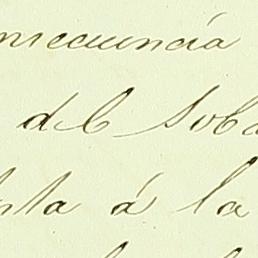 nsecuencia
del Sob
sta á la